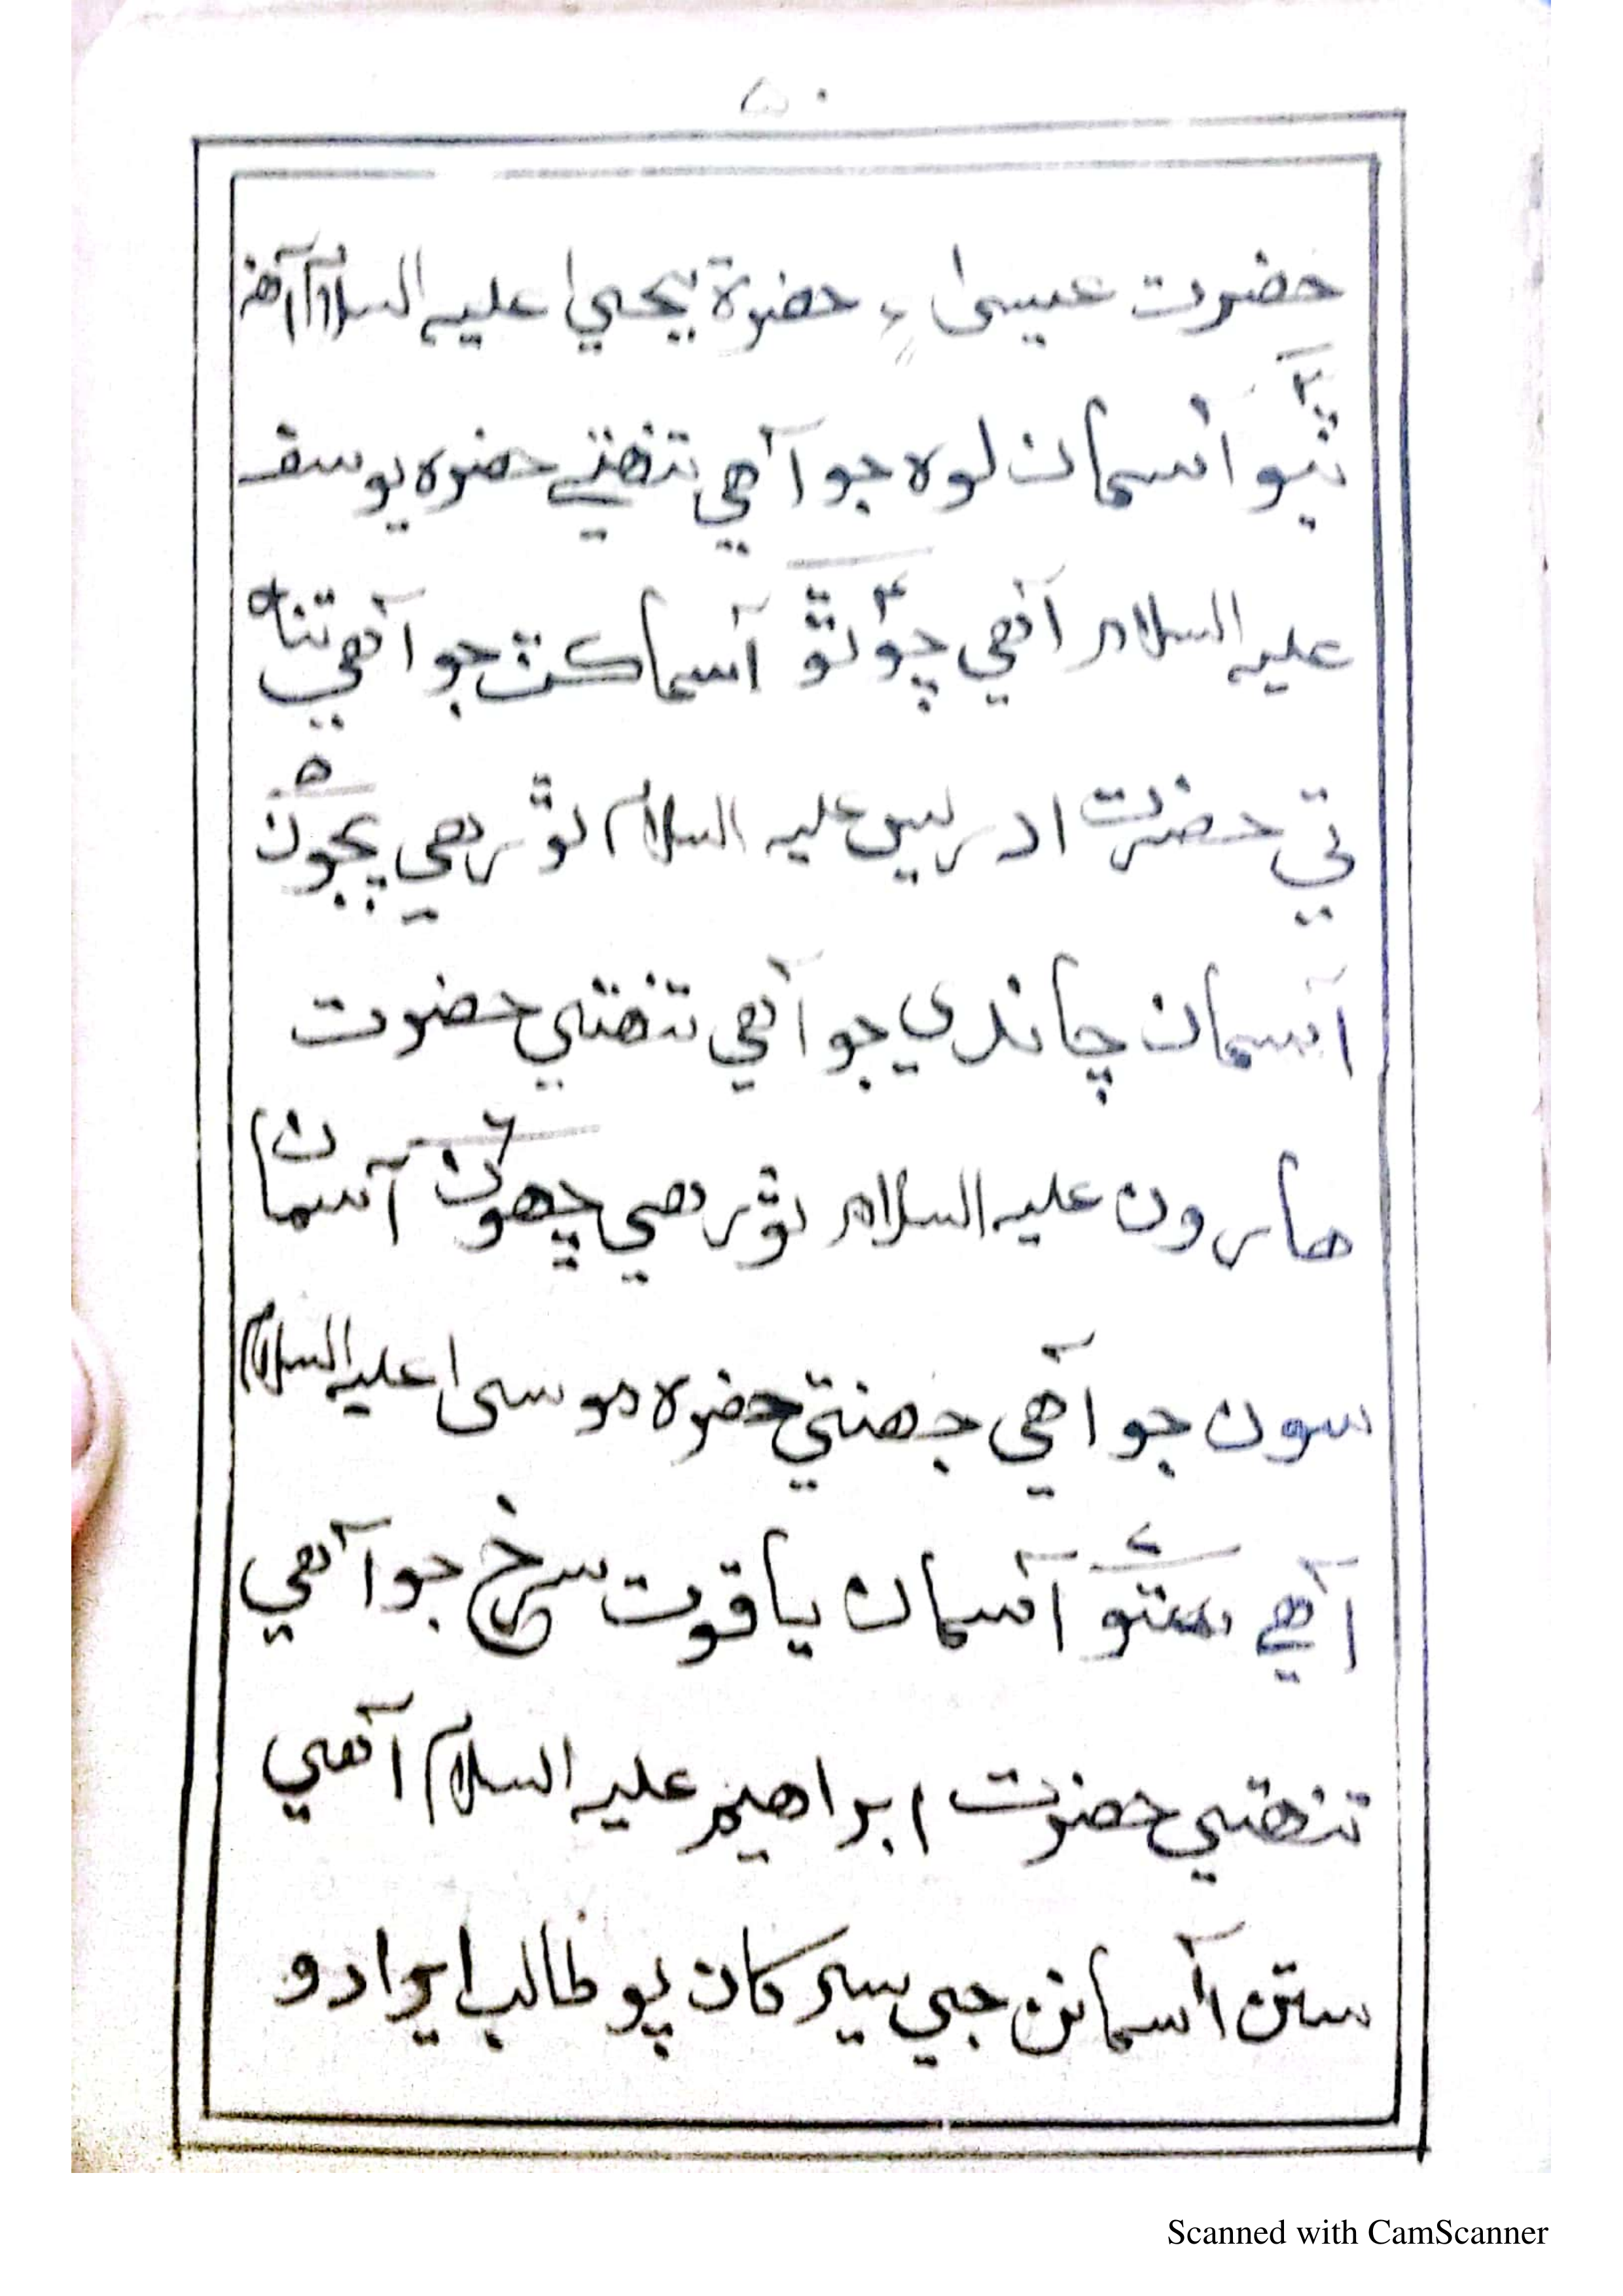 ۵۰
حضرت عيسىٰ ۽ حضرة يحيىٰ عليه السلام آهن
۳
ٽيو آسمان لوه جو آهي تنهتي حضره يوسف
عليه السلام آهي چوٿو ۴ آسما ڪٽ جو آهي تنه
تي حضرت ادريس عليه السلام ٿو رهي پجون ۵
آسمان چاندي جو آهي تنهتي حضرت
هارون عليه السلام ٿو رهي ڇهون ۶ آسمان
سون جو آهي جهنتي حضره موسىٰ عليه السلام
آهي ستو ۷ آسمان ياقوت سرخ جو آهي
تنهتي حضرت ابراهيم عليه السلام آهي
ستن آسمانن جي سير کان پو طالب ايرادو
Scanned with CamScanner